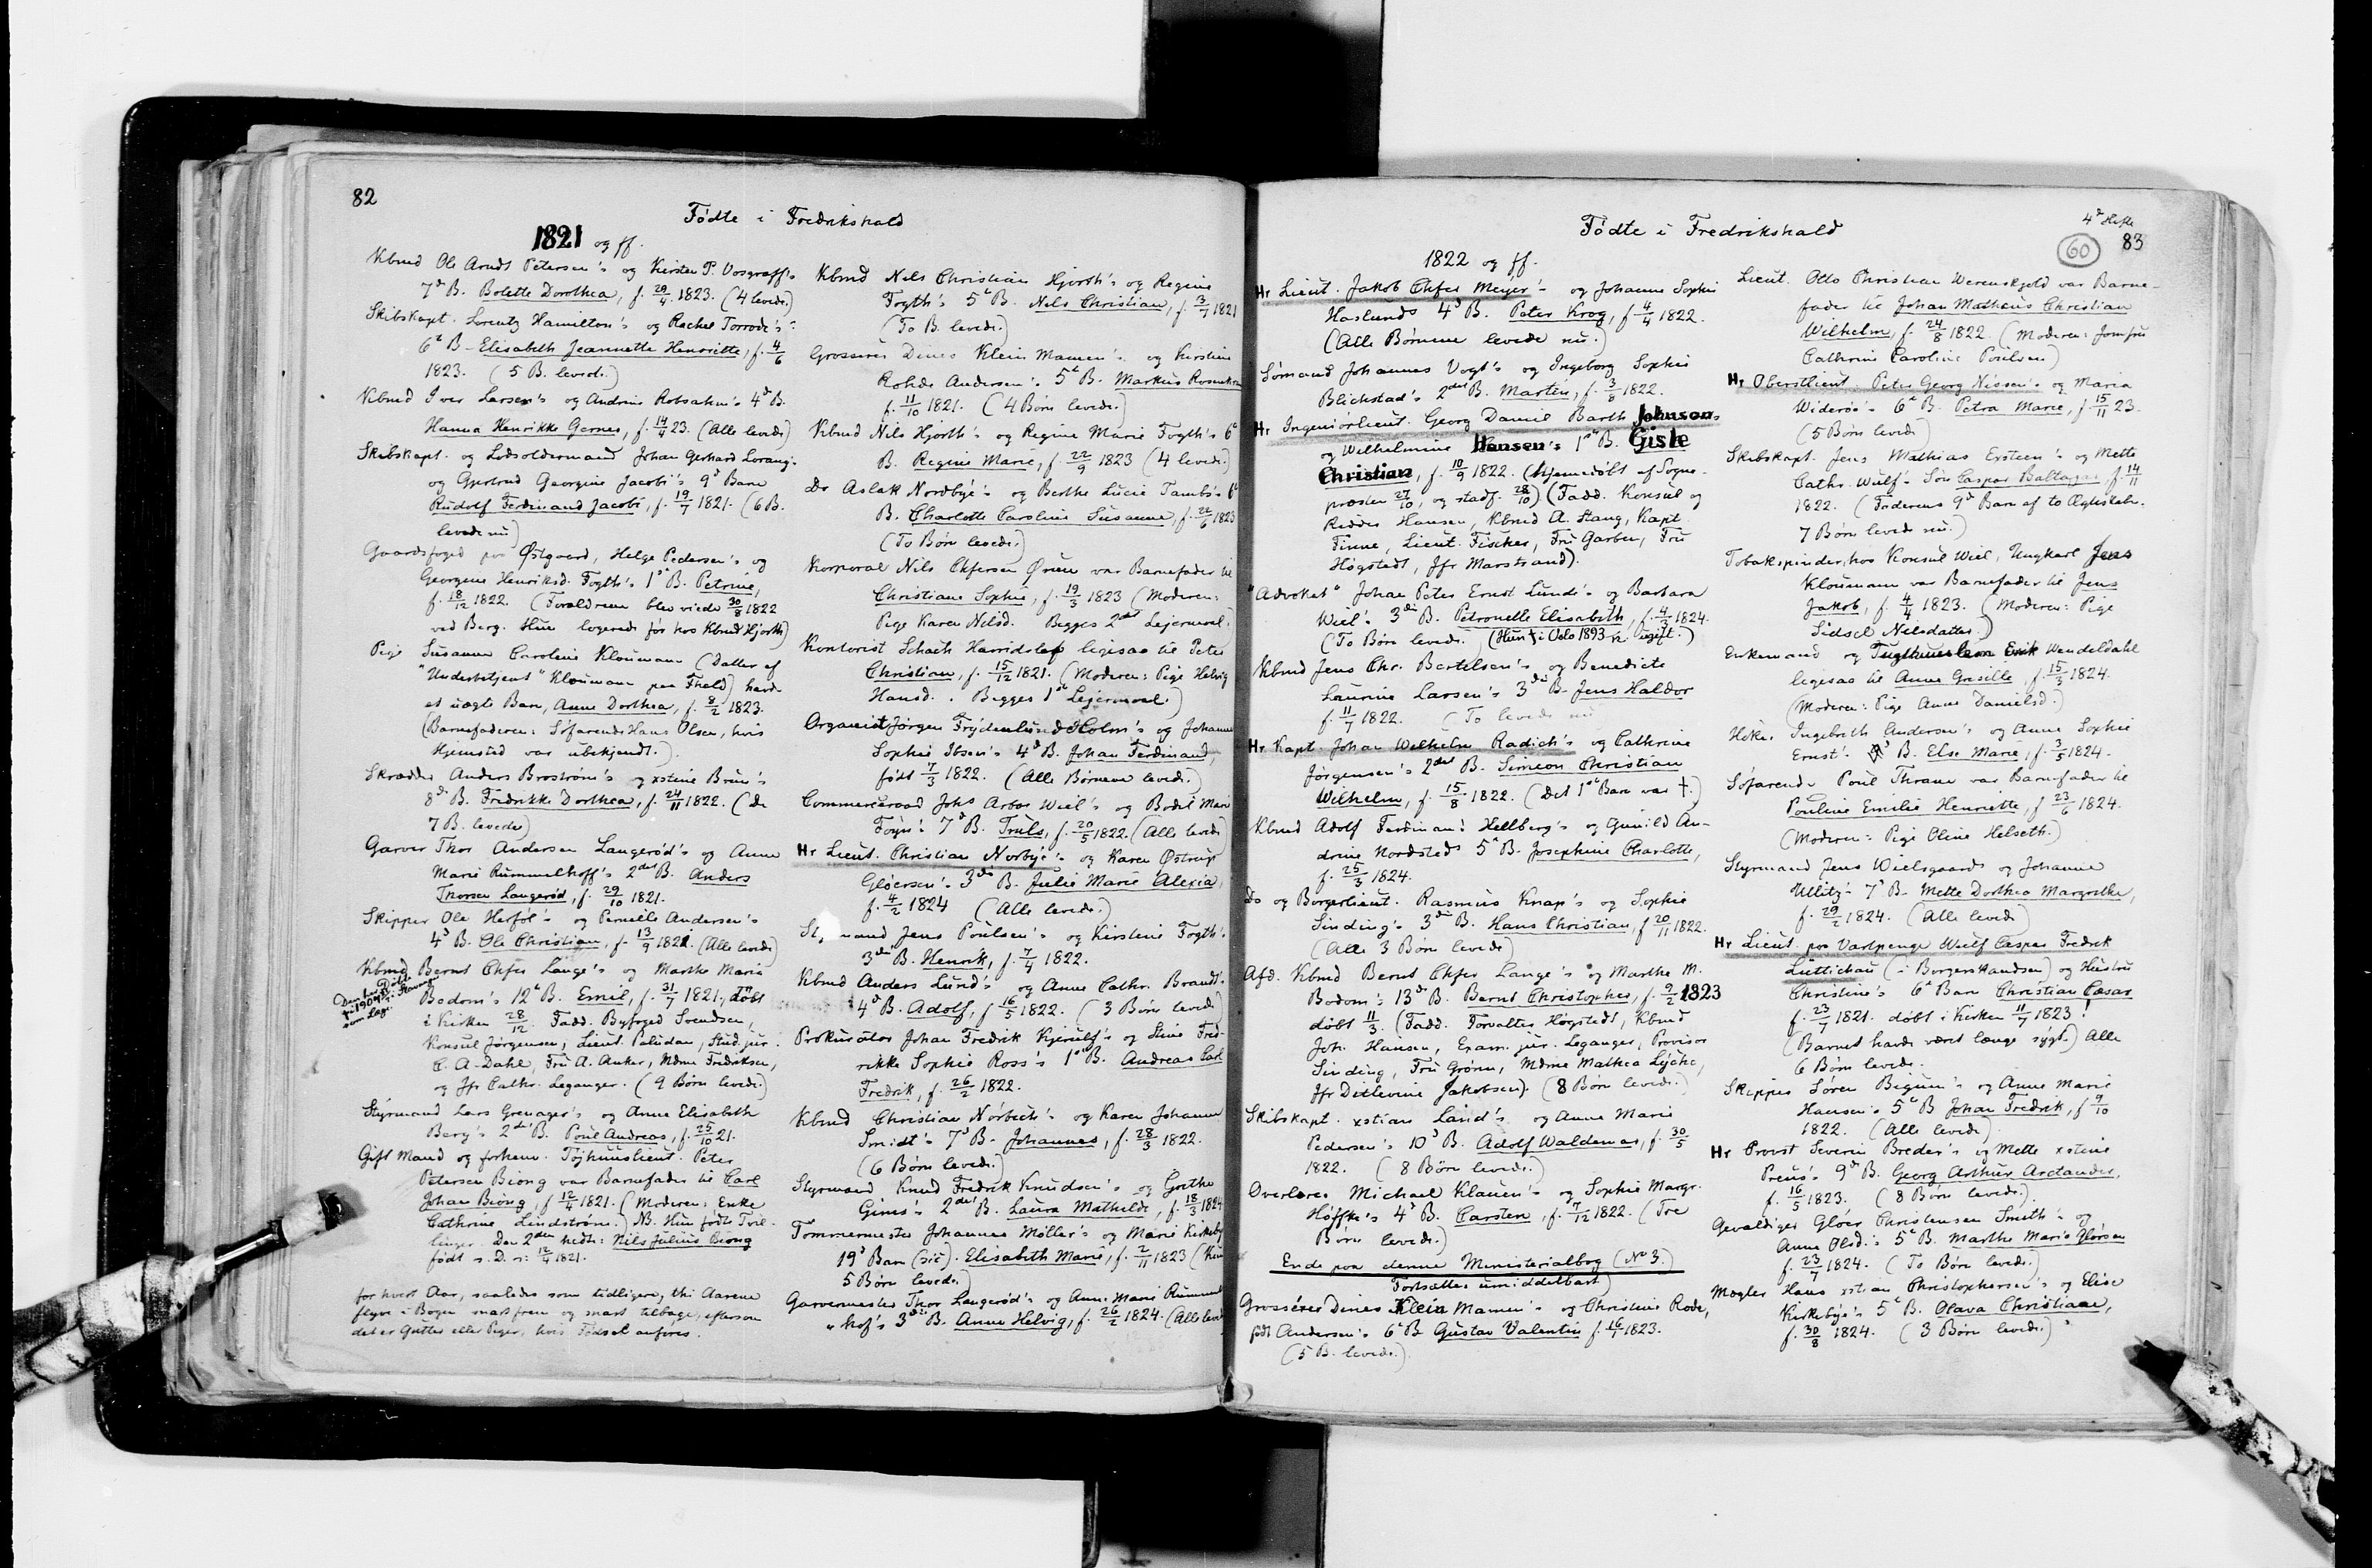 82
Födte i Fredrikshald
1821 og ff.
Kbmd Ole Arndt Petersen's og Kirsten P. Vosgraff's
7d B. Bolette Dorothea, f. 29/4 1823. (4 levede.)
Skibskapt. Lorentz Hamilton's og Rachel Torrode's
6t B. Elisabeth Jeannette Henriette, f. 4/6
1823. (5 B. levede.)
Kbmd Iver Larsen's og Andrine Robsahm's 4d B.
Hanna Henrikke Gerner, f. 14/4 23. (Alle levede)
Skibskapt. og Lodsoldermand Johan Gerhard Lorang's
og Gjertrud Georgine Jacobi's 9d Barn
Rudolf Ferdinand Jacobi, f. 19/7 1821. (6 B.
levede nu)
Gaardsfoged paa Østgaard, Helge Pedersen's og
Georgine Henriksd. Fogth's 1ste B. Petrine,
f. 18/12 1822. (Forældrene blev viede 30/8 1822
ved Berg. Hun logerede før hos Kbmd Hjorth)
Pige Susanne Caroline Kloumann (Datter af
"Underbetjent" Kloumann paa Fhald) havde
et uægte Barn, Anne Dorthea, f. 8/2 1823.
(Barnefaderen: Søfarende Hans Olsen, hvis
Hjemsted var ubekjendt.)
Skrædder Anders Broström's og xstine Brun's
8de B. Fredrikke Dorthea, f. 24/11 1822. (de
7 B. levede)
Garver Thor Andersen Langerød's og Anne
Marie Rummelhoff's 2det B. Anders
Thorsen Langerød, f. 29/10 1821.
Skipper Ole Herföl's og Pernille Andersen's
4d B. Ole Christian, f. 13/9 1821. (Alle levede)
Kbmd Bernt Chfer Lange's og Marthe Marie
Bodom's 12t B. Emil, f. 31/7 1821, døbt
i Kirken 28/12. Fadd. Byfoged Svendsen,
Konsul Jørgensen, Lieut. Paludan, Stud. jur.
C. A. Dahl, Fru A. Anker, Mdme Fredriksen,
og Jfr Cathr. Leganger. (9 Børn levede.)
Styrmand Lars Grenager's og Anne Elisabeth
Berg's 2det B. Poul Andreas, f. 25/10 21.
Gift Mand og forhenv. Töjhuuslieut. Peter
Petersen Biong var Barnefader til Carl
Johan Biong, f. 12/4 1821. (Moderen: Enke
Cathrine Lindstrøm.) NB. Hun fødte Tvil-
linger. Den 2den hedte: Nils Julius Biong
født s. D. : 12/4 1821.
for hvert Aar, saaledes som tidligere, thi Aarene
flyve i Bogen snart frem og snart tilbage, eftersom
det er Gutter eller Piger, hvis Fødsel anføres.
Kbmd Nils Christian Hjorth's og Regine
Fogth's 5t B. Nils Christian, f. 3/7 1821
(To B. levede.)
Grosserer Dines Klein Mamen's og Kirstine
Rohde Andersen's 5t B. Markus
f. 11/10 1821. (4 Børn levede.)
Kbmd Nils Hjorth's og Regine Marie Fogth's 6t
B. Regine Marie, f. 22/9 1823 (4 levede.)
Do Aslak Nordbye's og Berthe Lucie Tambs's 6t
B. Charlotte Caroline Susanne, f. 22/6 1823
(To Børn levede.)
Korporal Nils Chfersen Øruen var Barnefader til
Christiane Sophie, f. 19/3 1823 (Moderen:
Pige Karen Nilsd. Begges 2det Lejermaal.)
Kontorist Schach Harridslef ligesaa til Peter
Christian, f. 15/12 1821. (Moderen: Pige Helvig
Hansd. Begges 1ste Lejermaal.)
Organist Jørgen Frydenlund Holm's og Johanne
Sophie Ibsen's 4d B. Johan Ferdinand,
født 7/3 1822. (Alle Børnene levede.)
Commerceraad Johs Arbo Wiel's og Bodil Marie
Föyn's 7d B. Truls, f. 20/5 1822. (Alle levede)
Hr Lieut. Christian Norbye's og Karen Østrup
Gløersen's 3die B. Julie Marie Alexia,
f. 4/2 1824 (Alle levede.)
Styrmand Jens Poulsen's og Kirstine Fogth's
3die B. Henrik, f. 7/4 1822.
Kbmd Anders Lund's og Anne Cathr. Brandt's
4d B. Adolf, f. 16/5 1822. (3 Børn levede)
Prokurator Johan Fredrik Kjerulf's og Stine Fred-
rikke Sophie Ross's 1ste B. Andreas Carl
Fredrik, f. 26/2 1822.
Kbmd Christian Nörbech's og Karen Johanne
Smidt's 7d B. Johannes, f. 28/3 1822.
(6 Børn levede.)
Styrmand Knud Fredrik Knudsen's og Grethe
Gines's 2det B. Laura Mathilde, f. 18/3 1824
Tømmermester Johannes Møller's og Marie Kirkeby
19d Barn (sic). Elisabeth Marie, f. 2/11 1823 (Kun
5 Børn levede.)
Garvermester Thor Langerød's og Anne Marie Rummel-
hof's 3die B. Anne Helvig, f. 26/2 1824. (Alle levede
Födte i Fredrikshald
4d Hefte
60 83
1822 og ff.
Hr Lieut. Jakob Chfer Meyer's og Johanne Sophie
Haslund's 4d B. Peter Krog, f. 4/4 1822.
(Alle Børnene levede nu.)
Sømand Johannes Vogt's og Ingeborg Sophie
Blichstad's 2det B. Marten, f. 3/8 1822.
Hr Ingeniörlieut. Georg Daniel Barth Johnson's
og Wilhelmine Hansen's 1ste B. Gisle
Christian, f. 10/9 1822. (hjemmedøbt af Sogne-
præsten 27/10, og stadf. 28/10) (Fadd. Konsul og
Ridder Hansen, Kbmd A. Stang, Kapt.
Finne, Lieut. Fischer, Fru Garben, Fru
Høgstedt, Jfr Marstrand).
"Advokat" Johan Peter Ernst Lund's og Barbara
Wiel's 3die B. Petronelle Elisabeth, f. 4/3 1824.
(To Børn levede. (Hun † i Oslo 1893. Ugift.)
Kbmd Jens Chr. Bertelsen's og Benedicte
Laurine Larsen's 3die B. Jens Haldor
f. 11/7 1822. (To levede nu
Hr Kapt. Johan Wilhelm Radich's og Cathrine
Jørgensen's 2det B. Simeon Christian
Wilhelm, f. 15/8 1822. (Det 1ste Barn var †.)
Kbmd Adolf Ferdinand Hellberg's og Gunild An-
drine Nordsted's 5t B. Josephine Charlotte,
f. 25/3 1824.
do og Borgerlieut. Rasmus Knap's og Sophie
Sinding's 3die B. Hans Christian, f. 20/11 1822.
(Alle 3 Børn levede)
Afd. Kbmd Bernt Chfer Lange's og Marthe M.
Bodom's 13d B. Bernt Christopher, f. 9/2 1823
døbt 11/3. (Fadd. Forvalter Høgstedt, Kbmd
Joh. Hansen, Exam. jur. Leganger, Provisor
Sinding, Fru Grønn, Mdme Mathea Lyche,
Jfr Ditlevine Jakobsen). (8 Børn levede.)
Skibskapt. xstian Land's og Anne Marie
Pedersen's 10d B. Adolf Waldemar, f. 30/5
1822. (8 Børn levede.)
Overlærer Michael Klauen's og Sophie Margr.
Höffke's 4d B. Carsten, f. 7/12 1822. (Tre
Børn levede.)
Ende paa denne Ministerialbog (No 3.)
Fortsættes umiddelbart)
Grossérer Dines Klein Mamen's og Christine Rode,
født Andersen's 6t B Gustav Valentin f. 16/1 1823.
(5 B. levede.)
Lieut. Otto Christian Werenskjold var Barne-
fader til Johan Mathæus Christian
Wilhelm, f. 24/8 1822. (Moderen: Jomfru
Cathrine Caroline Poulsen)
Hr Oberstlieut. Peter Georg Nissen's og Maria
Widerøe's 6t B. Petra Marie, f. 15/11 23.
(5 Børn levede)
Skibskapt. Jens Mathias Exsteen's og Mette
Cathr. Wulf's Søn Caspar Baltazar f. 14/11
1822. (Faderens 9d Barn af to Ægteskaber.
7 Børn levede nu.)
Tobakspinder hos Konsul Wiel, Ungkarl Jens
Kloumann var Barnefader til Jens
Jakob, f. 4/4 1823. (Moderen: Pige
Sidsel Nilsdatter.)
Enkemand og Tugthuuslem Erik Wendeldahl
ligesaa til Anne Gresille, f. 15/5 1824.
(Moderen: Pige Anne Danielsd.)
Höker Ingebreth Andersen's og Anne Sophie
Ernst's B. Else Marie, f. 3/5 1824.
Søfarende Poul Thrane var Barnefader til
Pouline Emilie Henriette, f. 23/6 1824.
(Moderen: Pige Oline Helseth.)
Styrmand Jens Wielsgaard's og Johanne
Ullitz's 7d B. Mette Dorthea Margrethe,
f. 29/2 1824. (Alle levede)
Hr Lieut. paa Vartpenge Wulf Caspar Fredrik
Luttichau (i Borgerskandsen) og Hustru
Christine's 6t Barn Christian Cæsar
f. 23/7 1821. døbt i Kirken 11/7 1823!
(Barnet havde været længe sygt.) Alle
6 Børn levede.
Skipper Søren Bigum's og Anne Marie
Hansen's 5t B Johan Fredrik, f. 9/10
1822. (Alle levede)
Hr Provst Severin Breder's og Mette xstine
Preus's 9d B. Georg Arthur Arctander,
f. 16/5 1823. (8 Børn levede.)
Gevaldiger Glöer Christensen Smith's og
Anne Olsd.'s 5t B. Marthe Marie Glörsen
f. 23/7 1824. (To Børn levede.)
Mægler Hans xstian Christophersen's og Elise
Kirkebye's 5t B. Olava Christiane,
f. 30/8 1824. (3 Børn levede.)